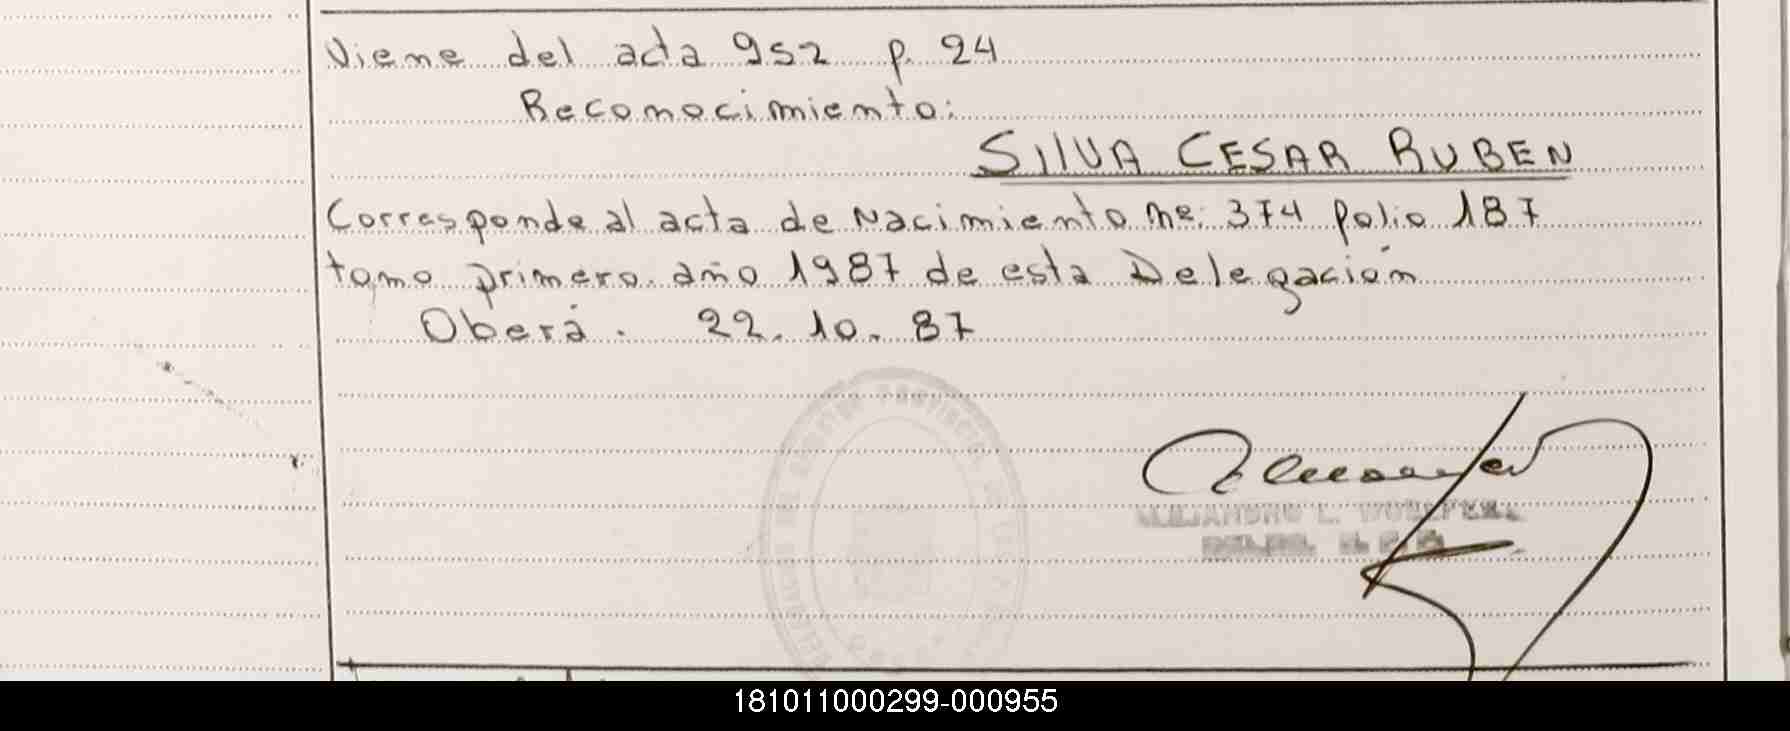 Viene del acta 952 p. 24
Reconocimiento:
SILVA CESAR RUBEN
Corresponde al acta de Nacimiento nº: 374 folio 187
tomo primero. año 1987 de esta Delegación
Oberá. 22.10.87
ALEJANDRO L.
181011000299-000955